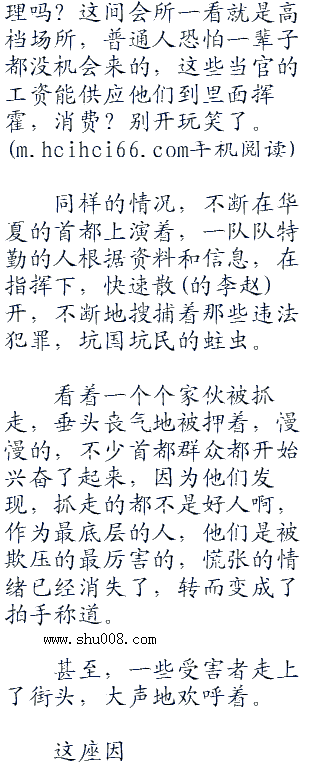 理吗？这间会所一看就是高
档场所，普通人恐怕一辈子
都没机会来的，这些当官的
工资能供应他们到里面挥
霍，消费？别开玩笑了。
(m.hcihci66.com手机阅读)
同样的情况，不断在华
夏的首都上演着，一队队特
勤的人根据资料和信息，在
指挥下，快速散(的李赵)
开，不断地搜捕着那些违法
犯罪，坑国坑民的蛀虫。
看着一个个家伙被抓
走，垂头丧气地被押着，漫
漫的，不少首都群众都开始
兴奋了起来，因为他们发
现，抓走的都不是好人啊，
作为最底层的人，他们是被
欺压的最厉害的，慌张的情
绪已经消失了，转而变成了
拍手称道。
www.shu008.com
甚至，一些受害者走上
了街头，大声地欢呼着。
这座因